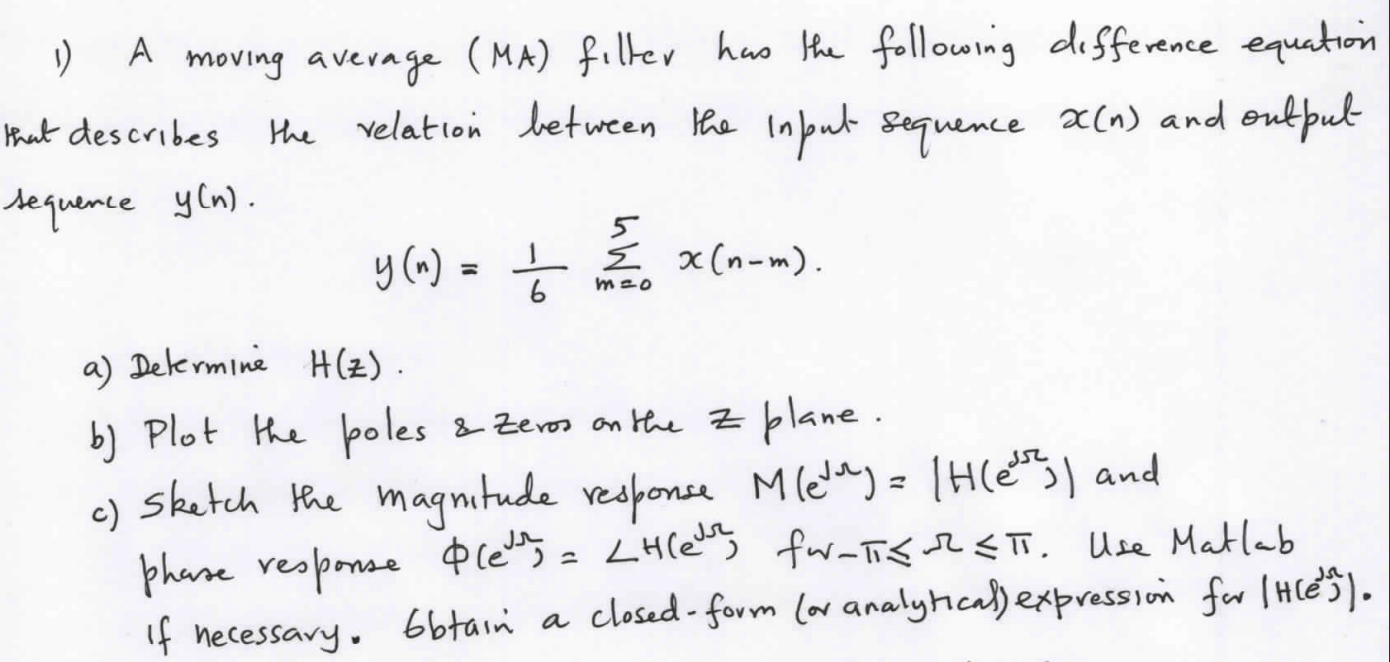 1) A moving average (MA) filter has the following difference equation
that describes the relation between the input sequence x(n) and output
sequence y(n).
y(n) = 1/6 Σ_{m=0}^{5} x(n-m).
a) Determine H(z).
b) Plot the poles & zeros on the z plane.
c) Sketch the magnitude response M(e^{jΩ}) = |H(e^{jΩ})| and
phase response Φ(e^{jΩ}) = ∠H(e^{jΩ}) for -π ≤ Ω ≤ π. Use Matlab
if necessary. Obtain a closed-form (or analytical) expression for |H(e^{jΩ})|.